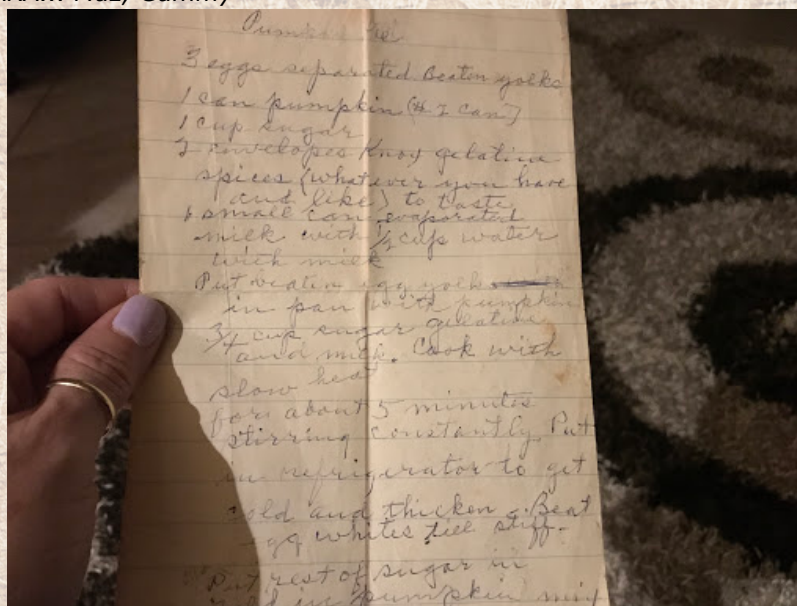 Pumpkin Pie
3 eggs separated Beaten yolks
1 can pumpkin (# 2 can)
1 cup sugar
2 envelopes Knox gelatine
spices (whatever you have
and like) to taste
1 small can evaporated
milk with 1/2 cup water
with milk
Put beaten egg yolk
in pan with pumpkin
3/4 cup sugar gelatine
and milk. Cook with
slow heat
for about 5 minutes
stirring constantly. Put
in refrigerator to get
cold and thicken. Beat
egg whites till stiff.
Put rest of sugar in
in pumpkin mix